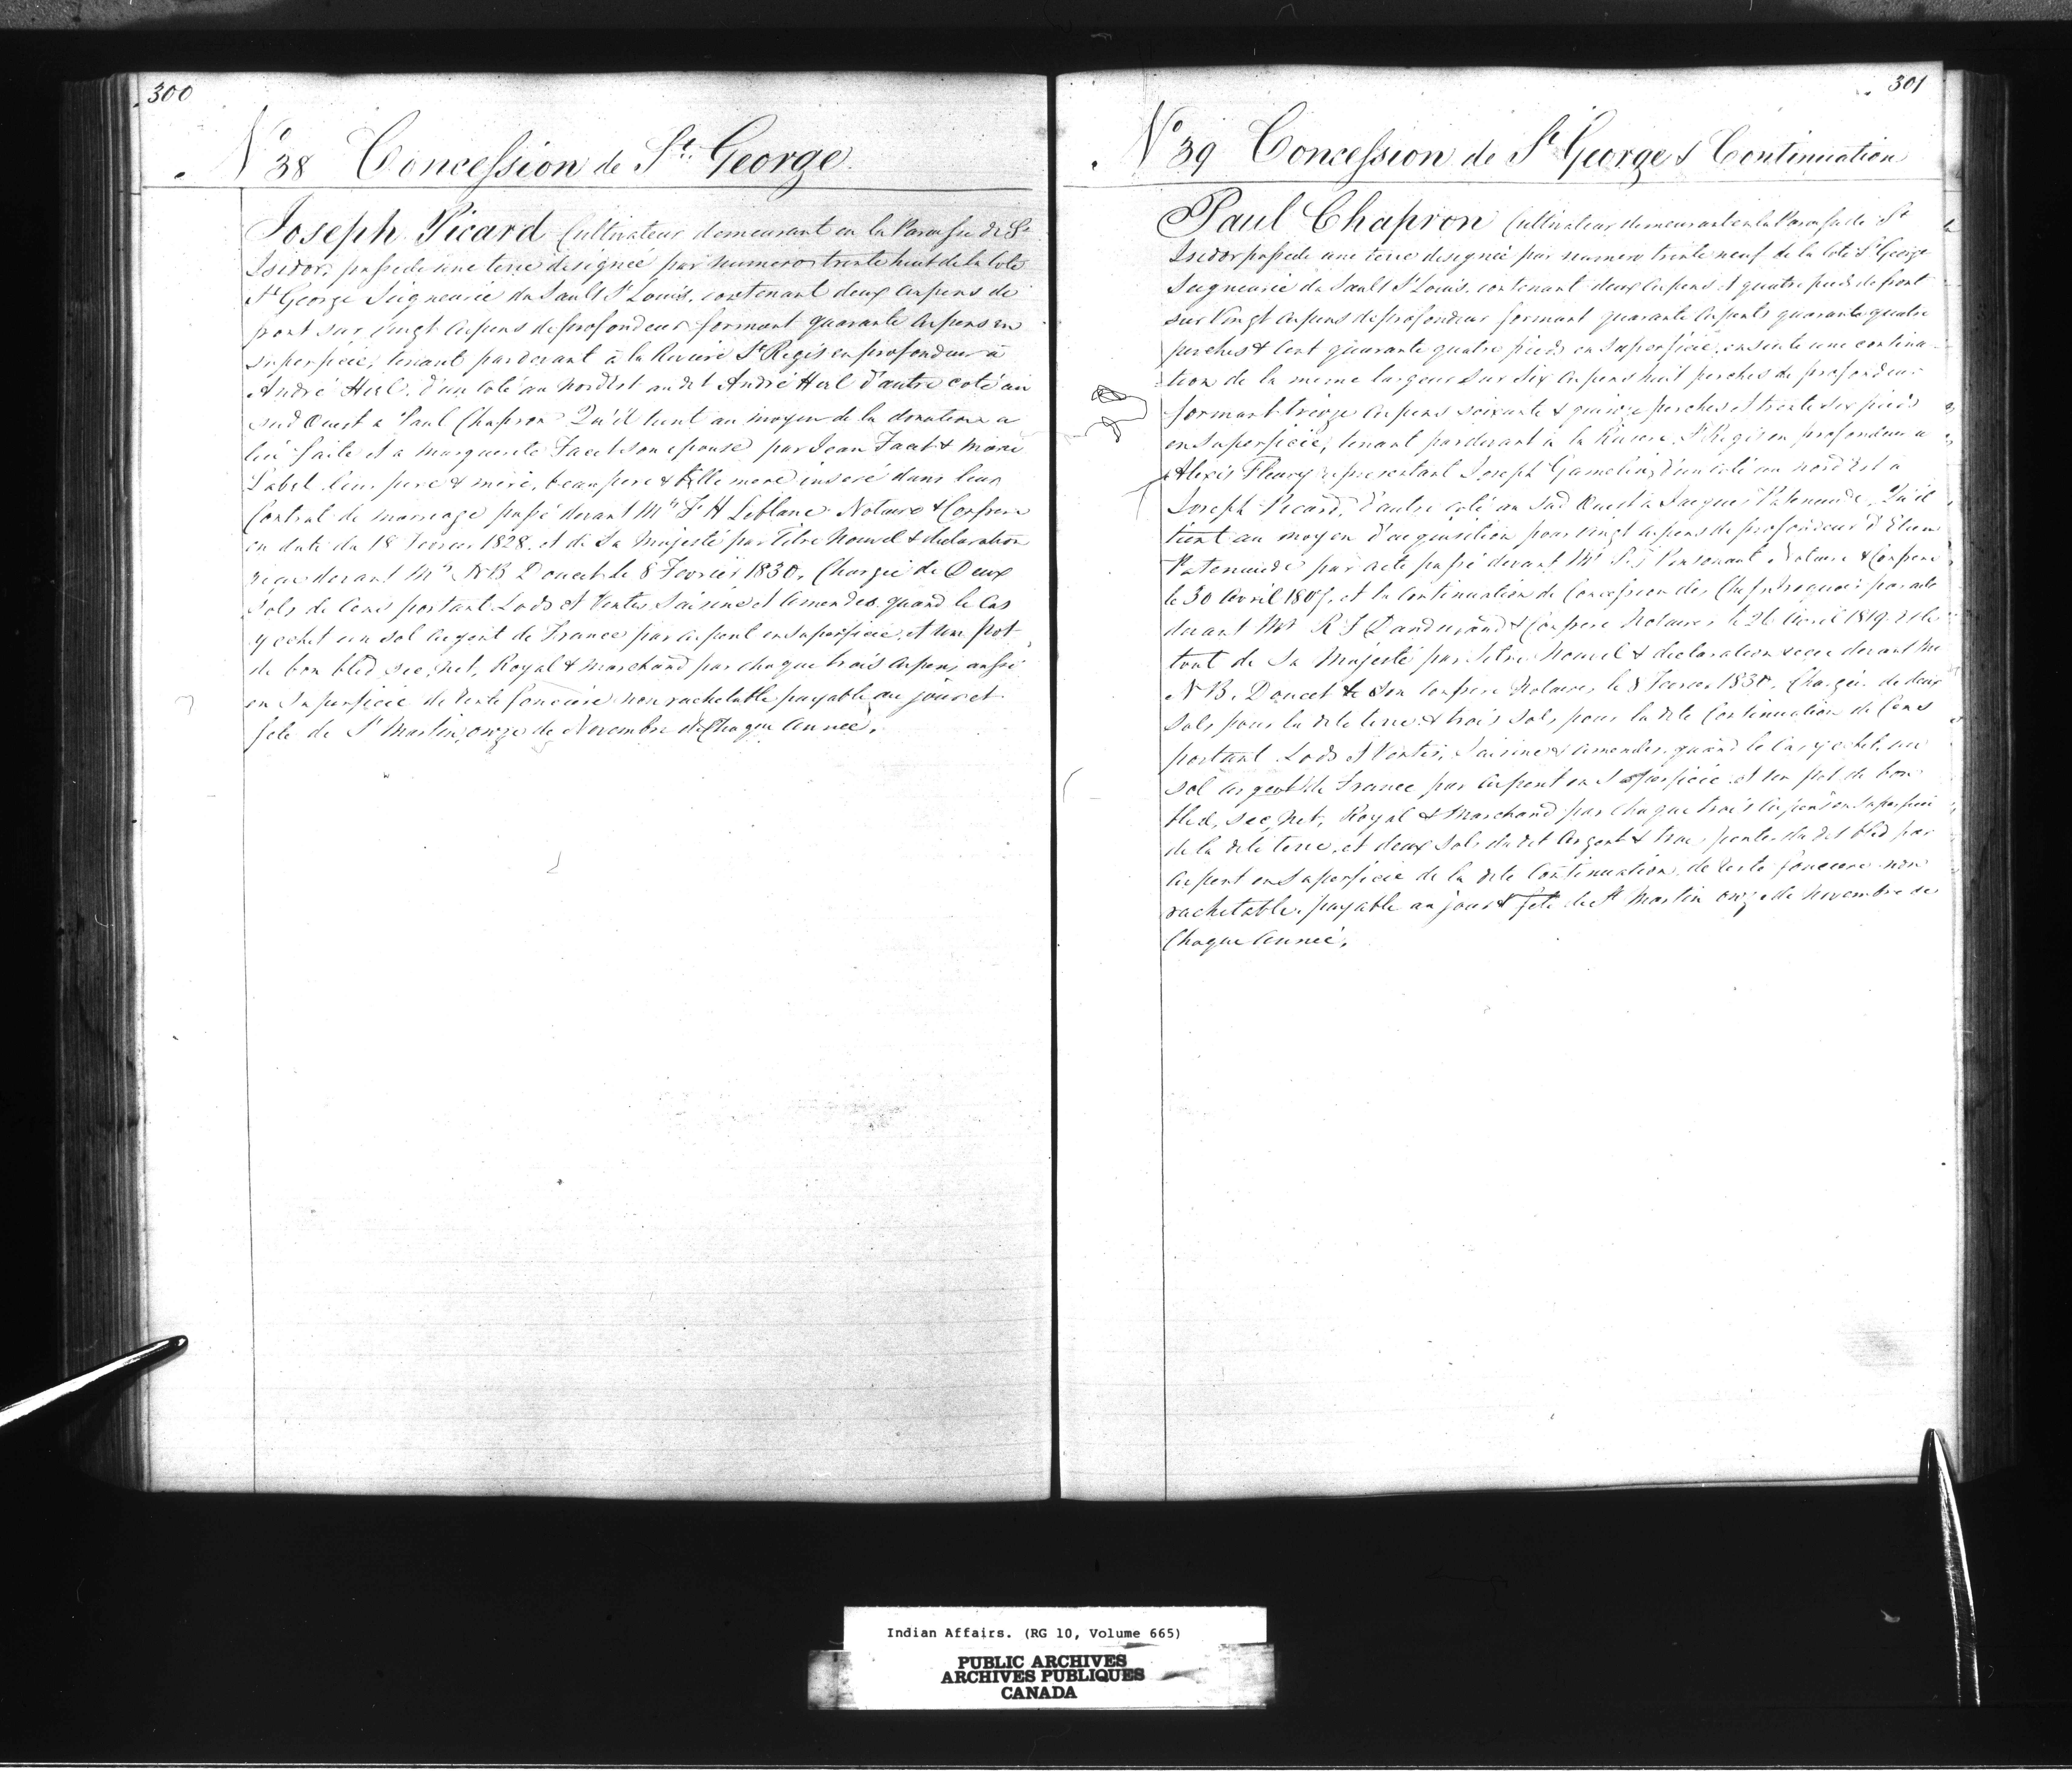 300
No 38 Concession de St. George.
Joseph Picard Cultivateur demeurant en la Paroisse de St
Isidor, possede une terre designée par numero trente huit de la Cote
St George Seigneurie du Sault St Louis, contenant deux arpens de
front sur vingt arpens de profondeur formant quarante arpens en
superficie, tenant pardevant à la Riviere St Regis en profondeur à
André Herl. d'un coté au nord Est au dt André Herl d'autre coté au
sud Ouest a Paul Chapron Qu'il tient au moyen de la donation a
lui faite et a Marguerite son epouse par Jean & Marie
Label leur pere & mere, beau pere & belle mere inseré dans leur
Contrat de mariage passé devant Mtre F H Leblanc Notaire & Confrere
en date du 18 Fevrier 1828. et de Sa Majesté par Titre Nouvel & declaration
recue devant Mtre N B Doucet le 8 Fevrier 1830. Chargée de Deux
Sols de Cens portant Lods et Ventes, Saisine et amendes quand le Cas
y echet un sol argent de France par arpent en superficie, et un pot
de bon bled sec, net, Royal & Marchand par chaque trois arpens aussi
en Superficie de rente fonciere non rachetable payable au jour et
fete de St Martin, onze de Novembre de Chaque année.
301
No 39 Concession de St George & Continuation
Paul Chapron Cultivateur demeurant en la Paroisse de St
Isidor possede une terre designée par numero trente neuf de la coté St George
Seigneurie du Sault St Louis, contenant deux arpens et quatre pieds de front
sur Vingt arpens de profondeur formant quarante arpents quarante quatre
perches & Cent quarante quatre pieds en Superficie, ensuite une continua-
tion de la meme largeur sur Six arpens huit perches de profondeur
formant treize arpens soixante & quinze perches et trente six pieds
en Superficie, tenant pardevant à la Riviere St Regis en profondeur a
Alexis Fleury representant Joseph Gamelin, d'un coté au nord Est a
Joseph Picard, d'autre coté au Sud Ouest a Jacques Patenaude, Qu'il
tient au moyen d'acquisition pour vingt arpens de profondeur d'
Patenaude par acte passé devant Mr Pinsonaut Notaire & Confrere
le 30 Avril et la Continuation de Concession des Chefs Iroquois par acte
devant Mtr R S Dandurand & Confrere Notaires le 26 Avril 1819. & le
tout de Sa Majesté par Titre Nouvel & declaration recue devant Me
N B. Doucet & Son Confrere Notaires le 8 Fevrier 1830. Chargée de deux
Sols pour la dite terre & trois Sols pour la dite Continuation de Cens
portant Lods et Ventes, Saisine & amendes quand le Cas y echet, un
Sol argent de France par arpent en Superficie et un pot de bon
bled, sec, net, Royal & Marchand par chaque trois arpens en Superficie
de la dite terre, et deux Sols du dit argent & trois pintes du dit bled par
arpent en Superficie de la dite Continuation, de rente fonciere non
rachetable, payable au jour & fete de St Martin onze de Novembre de
Chaque année.
Indian Affairs. (RG 10, Volume 665)
PUBLIC ARCHIVES
ARCHIVES PUBLIQUES
CANADA